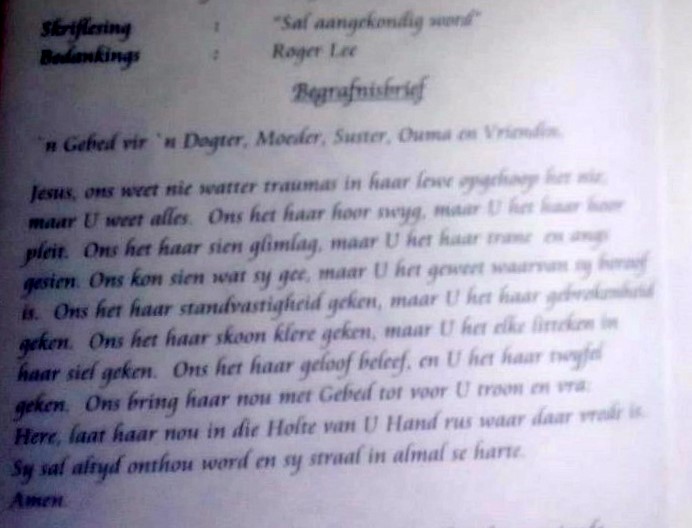 Skriflesing : "Sal aangekondig word"
Bedankings : Roger Lee
Begrafnisbrief
`n Gebed vir `n Dogter, Moeder, Suster, Ouma en Vriendin.
Jesus, ons weet nie watter traumas in haar lewe opgehoop het nie,
maar U weet alles. Ons het haar hoor swyg, maar U het haar hoor
pleit. Ons het haar sien glimlag, maar U het haar trane en angs
gesien. Ons kon sien wat sy gee, maar U het geweet waarvan sy beroof
is. Ons het haar standvastigheid geken, maar U het haar gebrokenheid
geken. Ons het haar skoon klere geken, maar U het elke litteken in
haar siel geken. Ons het haar geloof beleef, en U het haar twyfel
geken. Ons bring haar nou met Gebed tot voor U troon en vra:
Here, laat haar nou in die Holte van U Hand rus waar daar vrede is.
Sy sal altyd onthou word en sy straal in almal se harte.
Amen.